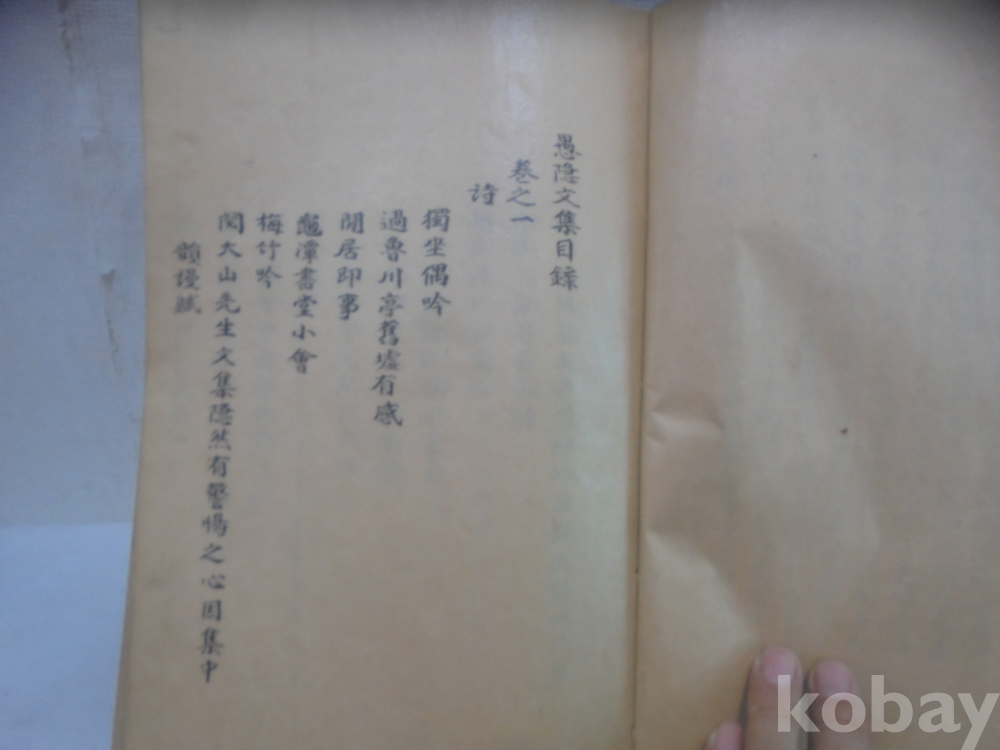 愚隐文集目錄
卷之一
诗
獨坐偶吟
過魯川亭舊墟有感
閒居即事
龜潭書堂小會
梅竹吟
閱大山先生文集隐然有警惕之心因集中
韻謾賦
kobay